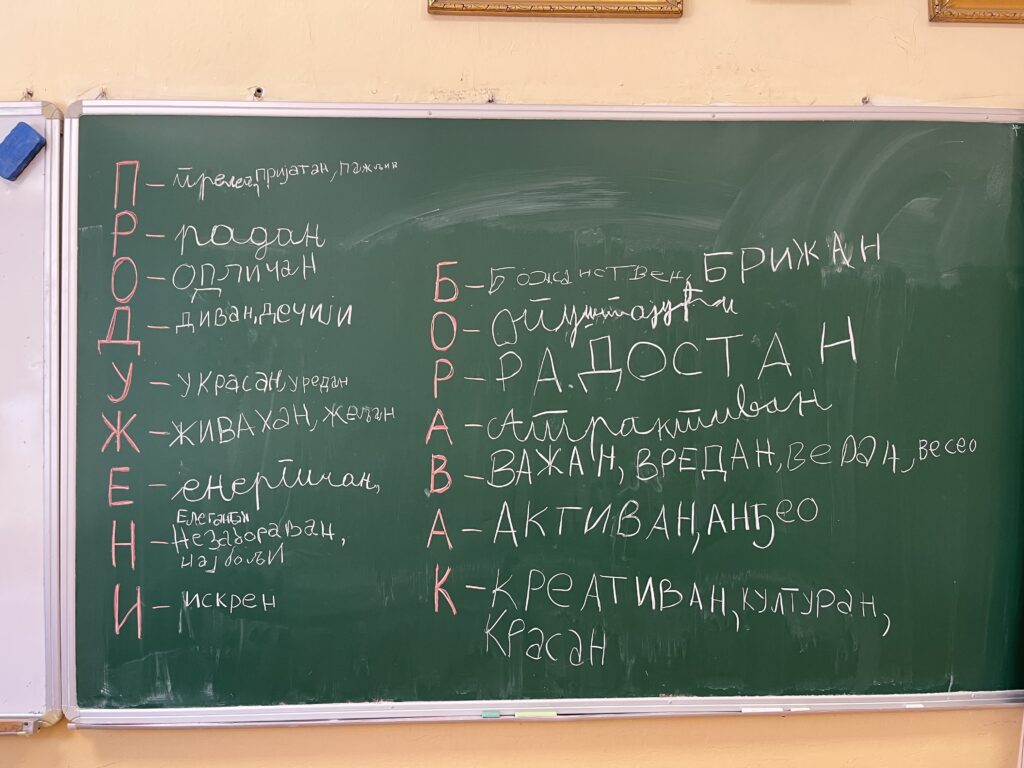 П – прелеп, пријатан, пажљив
Р – радан
О – одличан
Д – диван, дечији
У – украсан, уредан
Ж – живахан, жељан
Е – енергичан,
Елегантан
Н – Незабораван,
најбољи
И – искрен
Б – Божанствен, БРИЖАН
О – опуштајући
Р – РАДОСТАН
А – атрактиван
В – ВАЖАН, ВРЕДАН, Веран, весео
А – АКТИВАН, АНЂЕО
К – КРЕАТИВАН, КУЛТУРАН,
Красан